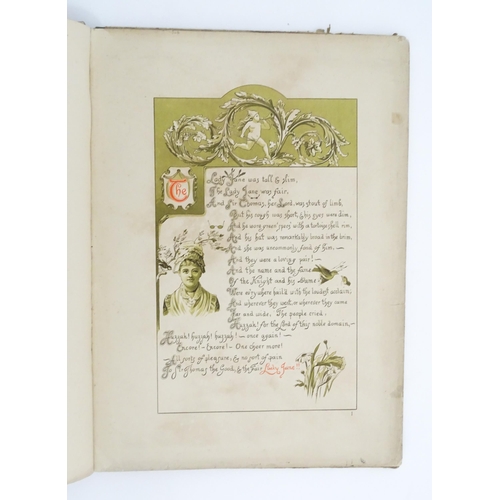 The Lady Jane was tall & slim,
The Lady Jane was fair,
And Sir Thomas, her Lord, was stout of limb,
But his cough was short, & his eyes were dim,
And he wore green specs with a tortoise shell rim,
And his hat was remarkably broad in the brim,
And she was uncommonly fond of him,-
And they were a loving pair!-
And the name and the fame
Of the Knight and his Dame
Were ev'rywhere hail'd with the loudest acclaim;
And wherever they went, or wherever they came
Far and wide, The people cried,
Huzzah! for the Lord of this noble domain,-
Huzzah! huzzah! huzzah!- once again!-
Encore!- Encore!- One cheer more!
-All sorts of pleasure, & no sort of pain
To Sir Thomas the Good, & the Fair Lady Jane!!